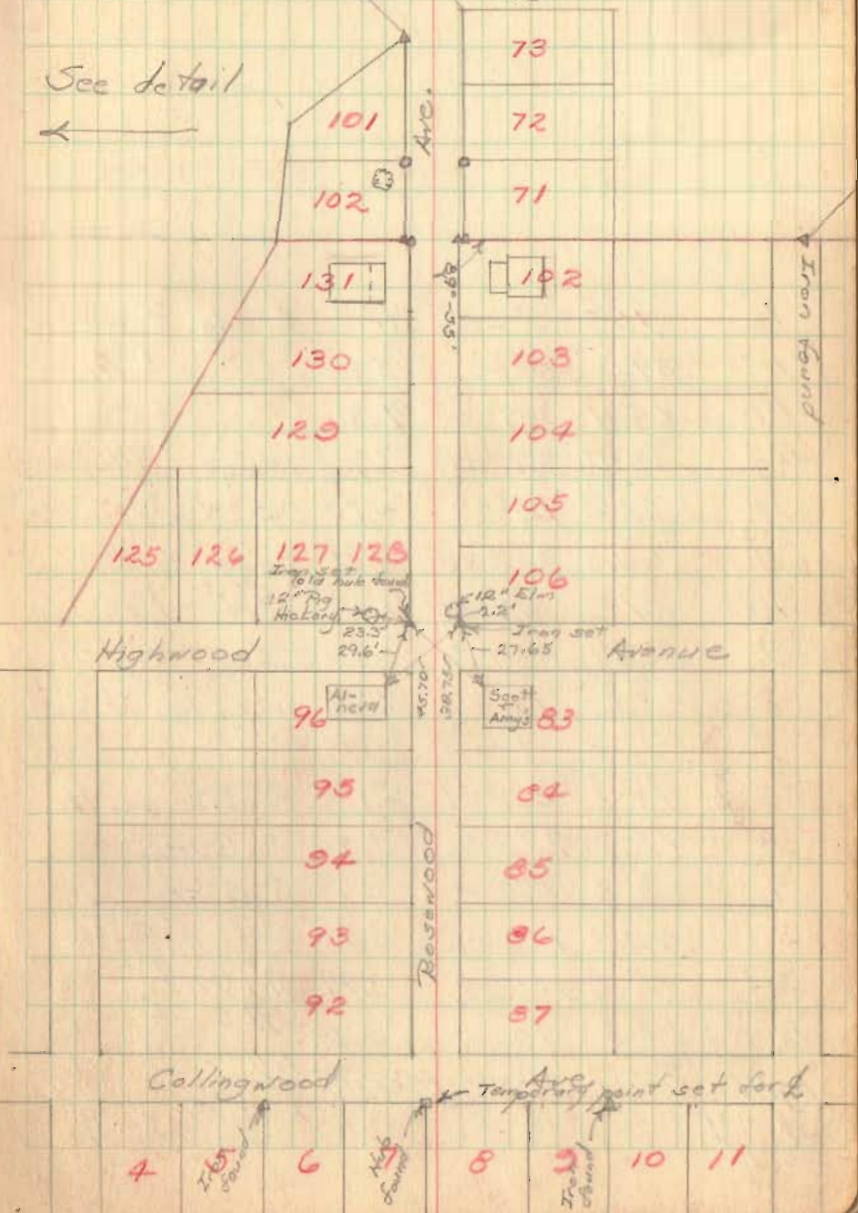 73
See detail
101
Ave.
72
102
71
131
89°-55'
102
Iron found
130
103
129
104
105
125 126 127 128
106
Iron set
old hub found
12" Pig
Hickory
23.5'
29.6'
12" Elm
2.2'
Iron set
27.65
Highwood Avenue
96
45.70
38.75
Scott
Amys
83
95
84
94
85
Rosewood
93
86
92
87
Collingwood Ave.
Temporary point set for ℄
4 5 6 7 8 9 10 11
Iron found
Hub found
Iron found